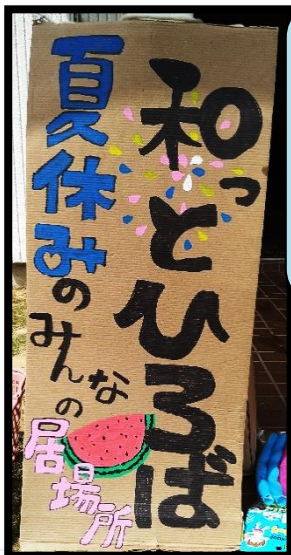 和っとひろば
夏休みのみんなの居場所